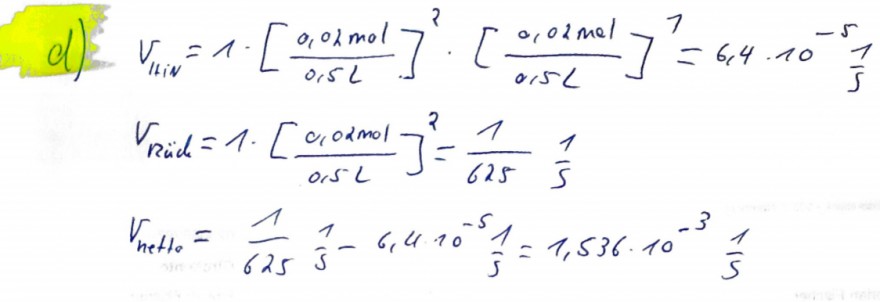 d) V_Hin = 1 · [0,02mol / 0,5L]² · [0,02mol / 0,5L]¹ = 6,4 · 10⁻⁵ 1/s
V_Rück = 1 · [0,02mol / 0,5L]² = 1/625 1/s
V_netto = 1/625 1/s - 6,4·10⁻⁵ 1/s = 1,536 · 10⁻³ 1/s